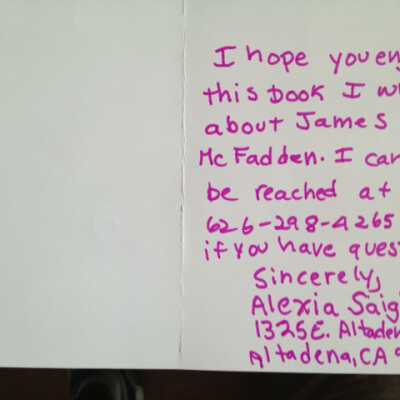 I hope you en
this book I w
about James
McFadden. I can
be reached at
626-298-4265
if you have ques
Sincerely,
Alexia Saig
1325 E. Altaden
Altadena, CA 9